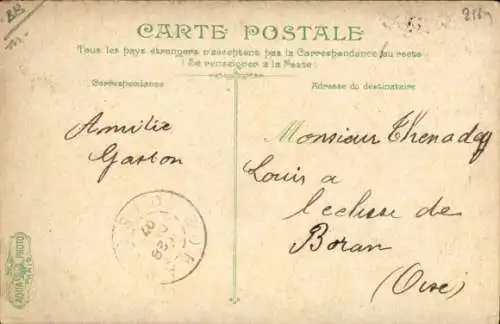 CARTE POSTALE
Tous les pays étrangers n'acceptent pas la Correspondance au recto
(Se renseigner à la Poste)
Correspondance
Adresse du destinataire
Amitié
Gaston
Monsieur Thenadey
Louis a
l'ecluse de
Boran
(Oise)
AQUA PHOTO
PARIS